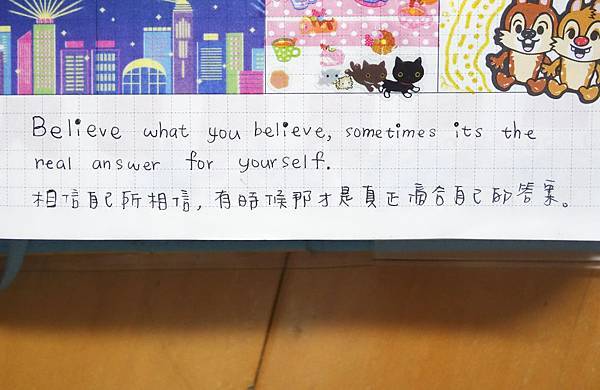 Believe what you believe, sometimes its the
real answer for yourself.
相信自己所相信，有時候那才是真正適合自己的答案。